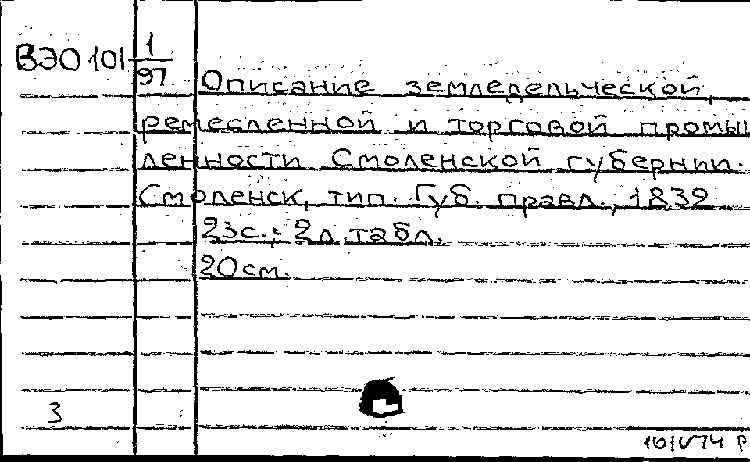 ВЭО 101 1/97
Описание земледельческой,
ремесленной и торговой промыш
ленности Смоленской губернии.
Смоленск, тип. Губ. правл., 1839
23с.; 2л. табл.
20см.
3